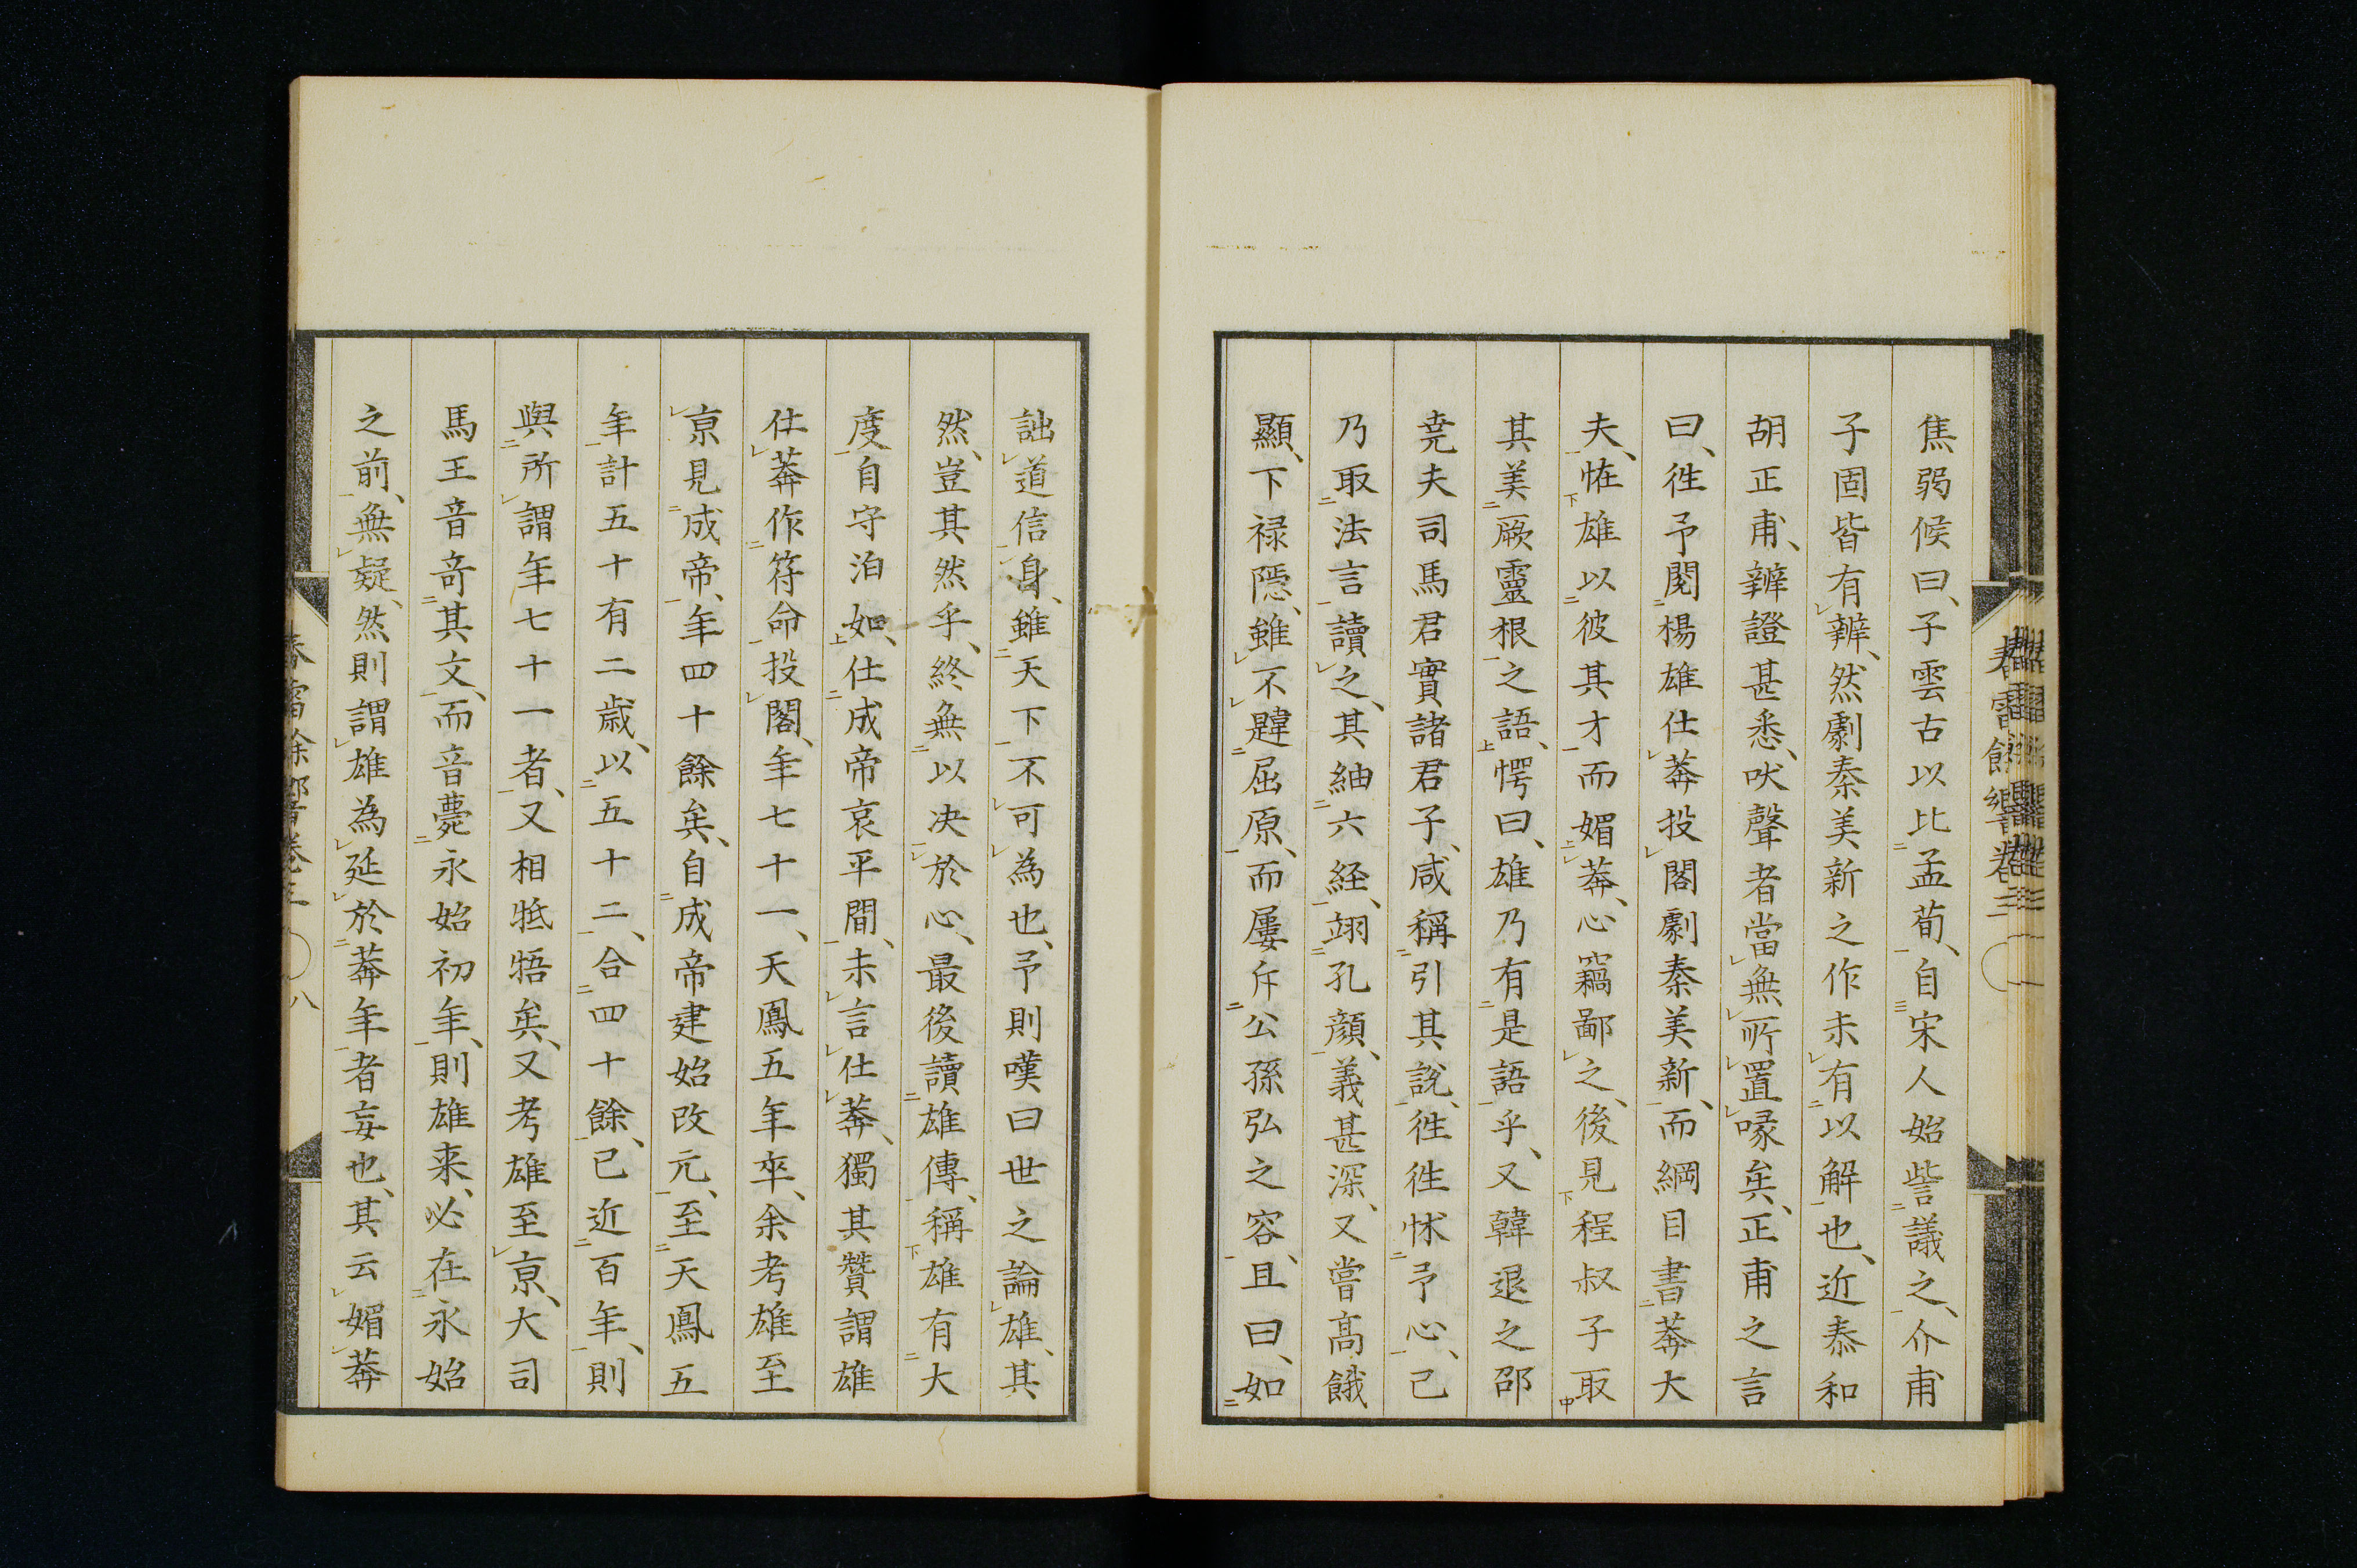 焦弱候曰、子雲古以比孟荀、自宋人始訾議之、介甫
子固皆有辨、然劇秦美新之作未有以解也、近泰和
胡正甫、辨證甚悉、吠聲者當無所置喙矣、正甫之言
曰、徃予閱楊雄仕莽投閣劇秦美新、而綱目書莽大
夫、恠雄以彼其才而媚莽、心竊鄙之、後見程叔子取
其美厥靈根之語、愕曰、雄乃有是語乎、又韓退之邵
堯夫司馬君實諸君子、咸稱引其說、徃徃怵予心、已
乃取法言讀之、其紬六経、翊孔顔、義甚深、又嘗高餓
顯、下禄隠、雖不韙屈原、而屢斥公孫弘之容、且曰、如
詘道信身、雖天下不可為也、予則嘆曰世之論雄、其
然、豈其然乎、終無以决於心、最後讀雄傳、稱雄有大
度自守泊如、仕成帝哀平間、未言仕莽、獨其贊謂雄
仕莽作符命投閣、年七十一、天鳳五年卒、余考雄至
亰見成帝、年四十餘矣、自成帝建始改元、至天鳳五
年計五十有二歳、以五十二、合四十餘、已近百年、則
與所謂年七十一者、又相牴牾矣、又考雄至亰、大司
馬王音竒其文、而音薨永始初年、則雄来、必在永始
之前、無疑、然則謂雄為延於莽年者妄也、其云媚莽